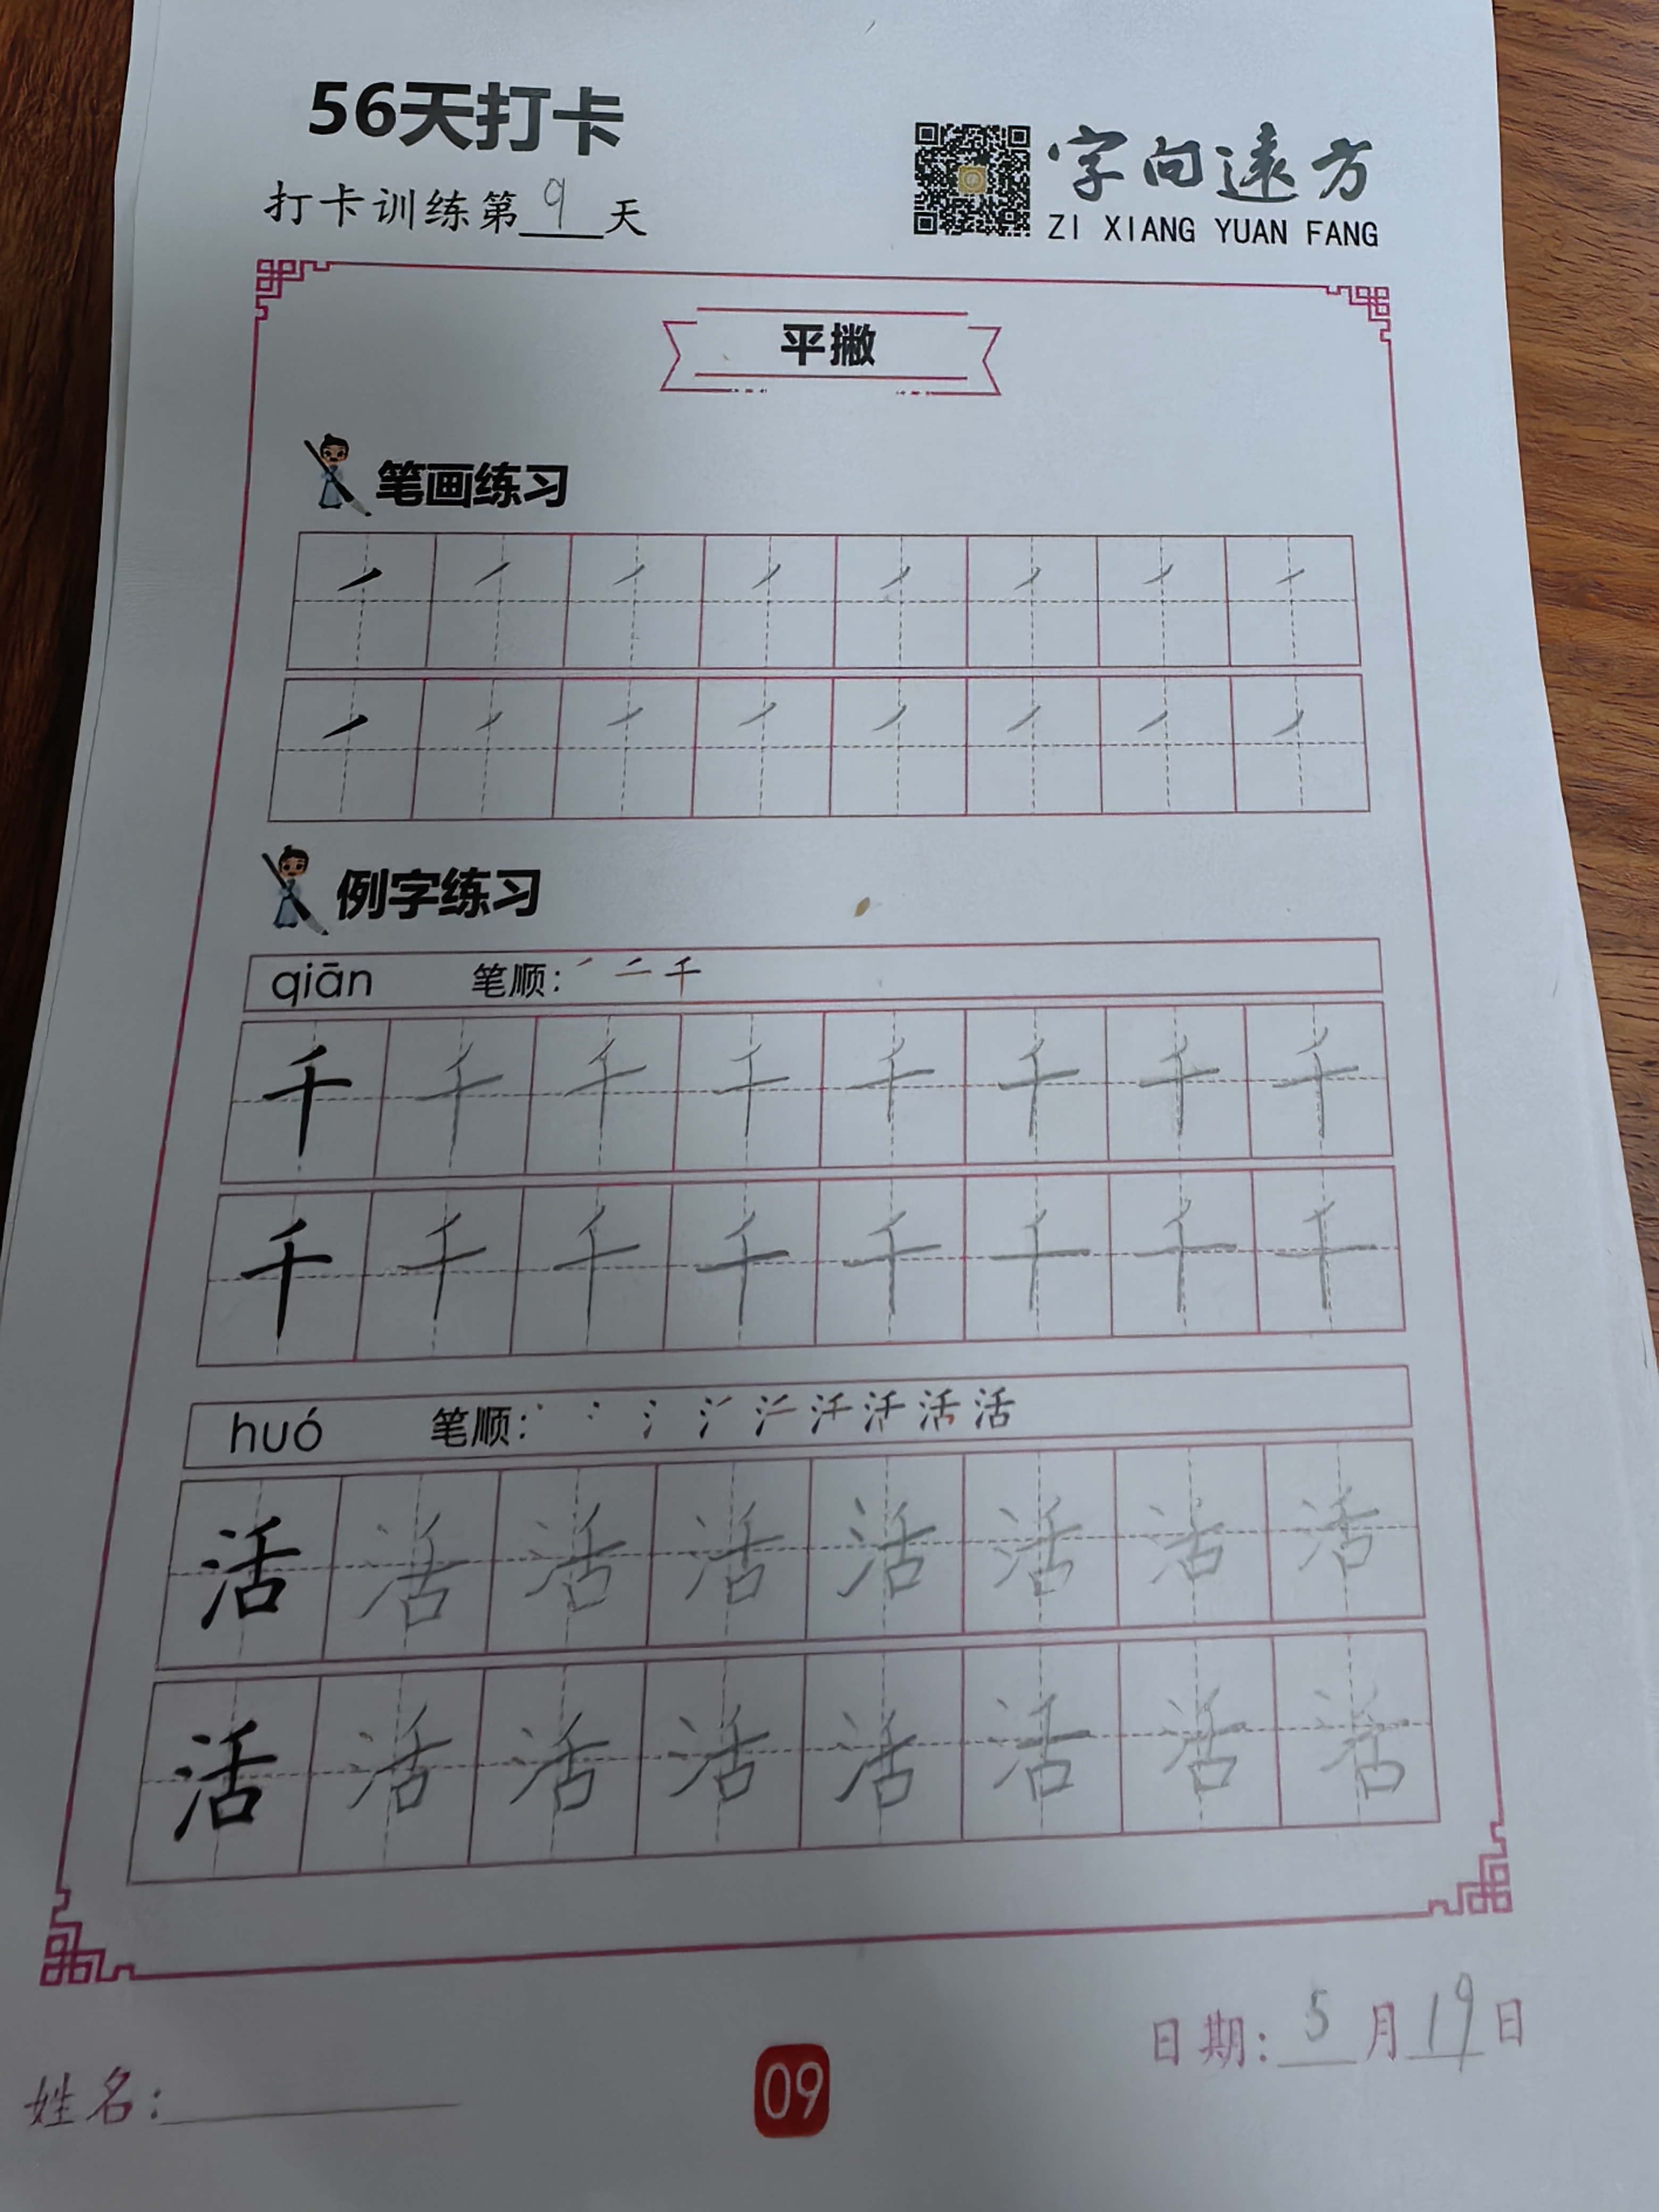 56天打卡
打卡训练第9天
字向远方
ZI XIANG YUAN FANG
平撇
笔画练习
㇒ ㇒ ㇒ ㇒ ㇒ ㇒ ㇒ ㇒
㇒ ㇒ ㇒ ㇒ ㇒ ㇒ ㇒ ㇒
例字练习
qiān 笔顺: ㇒ 二 千
千 千 千 千 千 千 千 千
千 千 千 千 千 千 千 千
huó 笔顺: 活
活 活 活 活 活 活 活 活
活 活 活 活 活 活 活 活
日期: 5月19日
姓名:
09